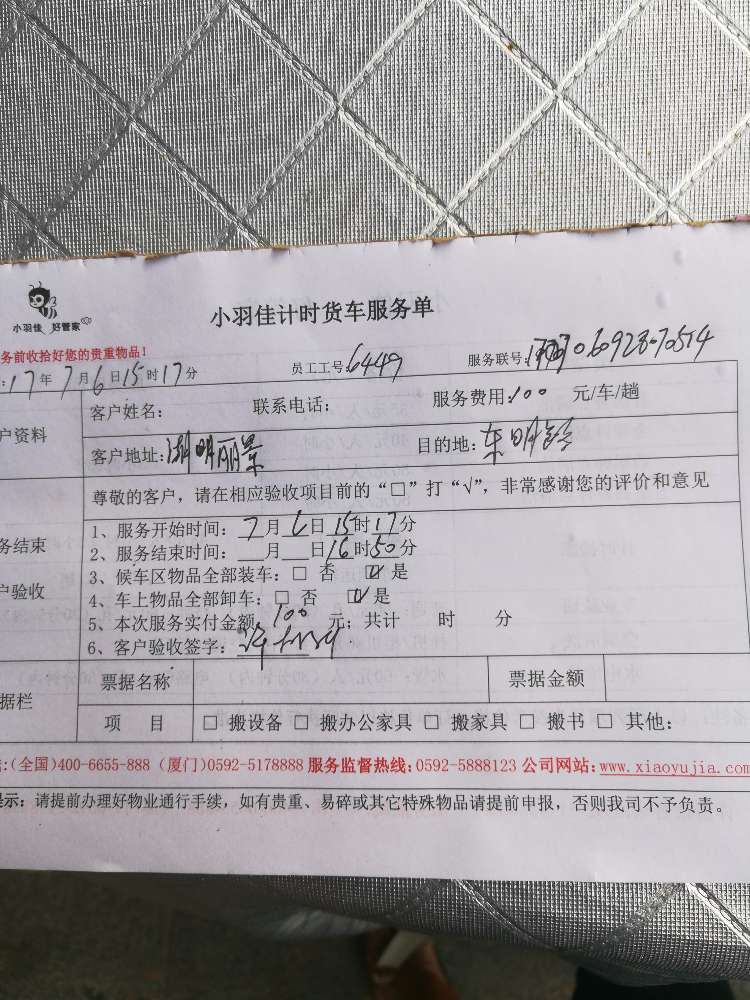 小羽佳 好管家
小羽佳计时货车服务单
务前收拾好您的贵重物品!
:17年7月6日15时17分 员工工号:6449 服务联号: 060928-70514
户资料 客户姓名: 联系电话: 服务费用:100 元/车/趟
客户地址:湖明丽景 目的地:东明路
尊敬的客户，请在相应验收项目前的“□”打“√”，非常感谢您的评价和意见
务结束
户验收
1、服务开始时间:7月6日15时17分
2、服务结束时间:___月___日16时50分
3、候车区物品全部装车:□ 否 ☑ 是
4、车上物品全部卸车:□ 否 ☑ 是
5、本次服务实付金额:100元; 共计 时 分
6、客户验收签字:
据栏 票据名称 票据金额
项 目 □ 搬设备 □ 搬办公家具 □ 搬家具 □ 搬书 □ 其他:
:(全国)400-6655-888 (厦门)0592-5178888 服务监督热线:0592-5888123 公司网站:www.xiaoyujia.com
示: 请提前办理好物业通行手续，如有贵重、易碎或其它特殊物品请提前申报，否则我司不予负责。